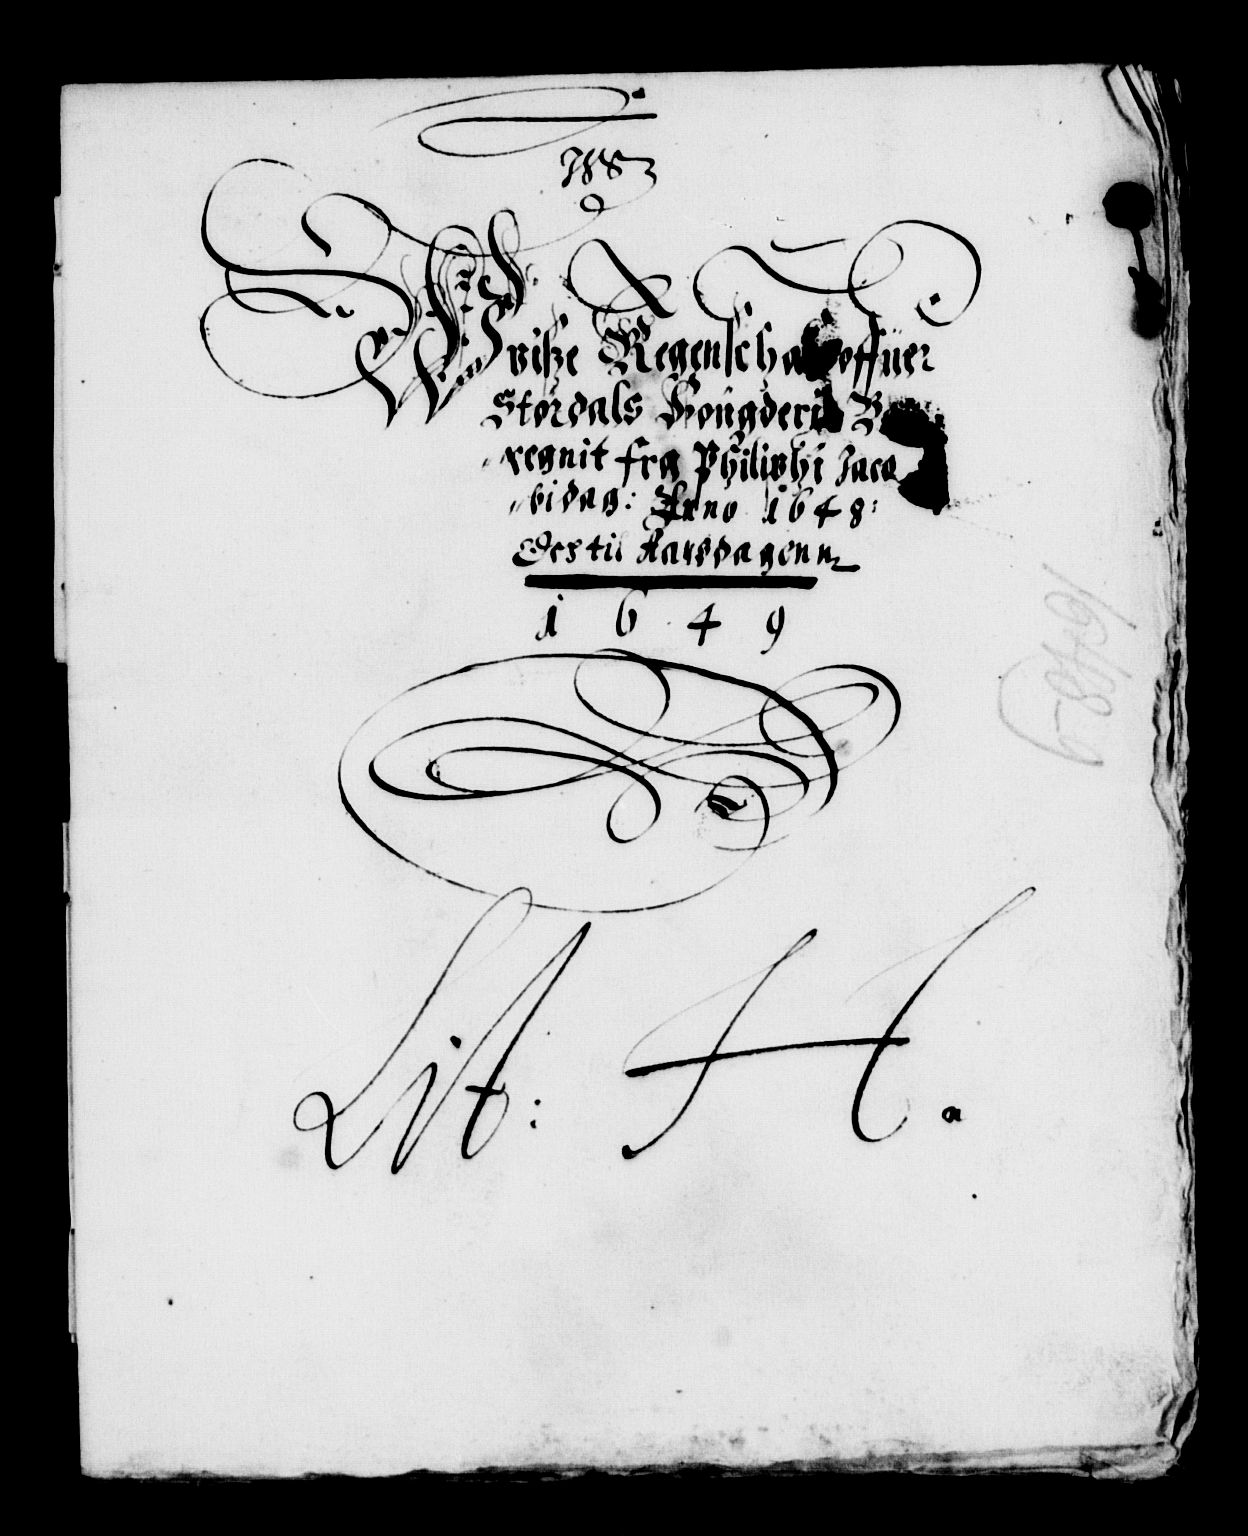 Wviſze Regenſchab offuer
Størdals Fougderie
regnit fra Philiphi Jaco
bi dag: Anno 1648:
Oex til Aarsdagenn
1649
Lit: H.
1648-9